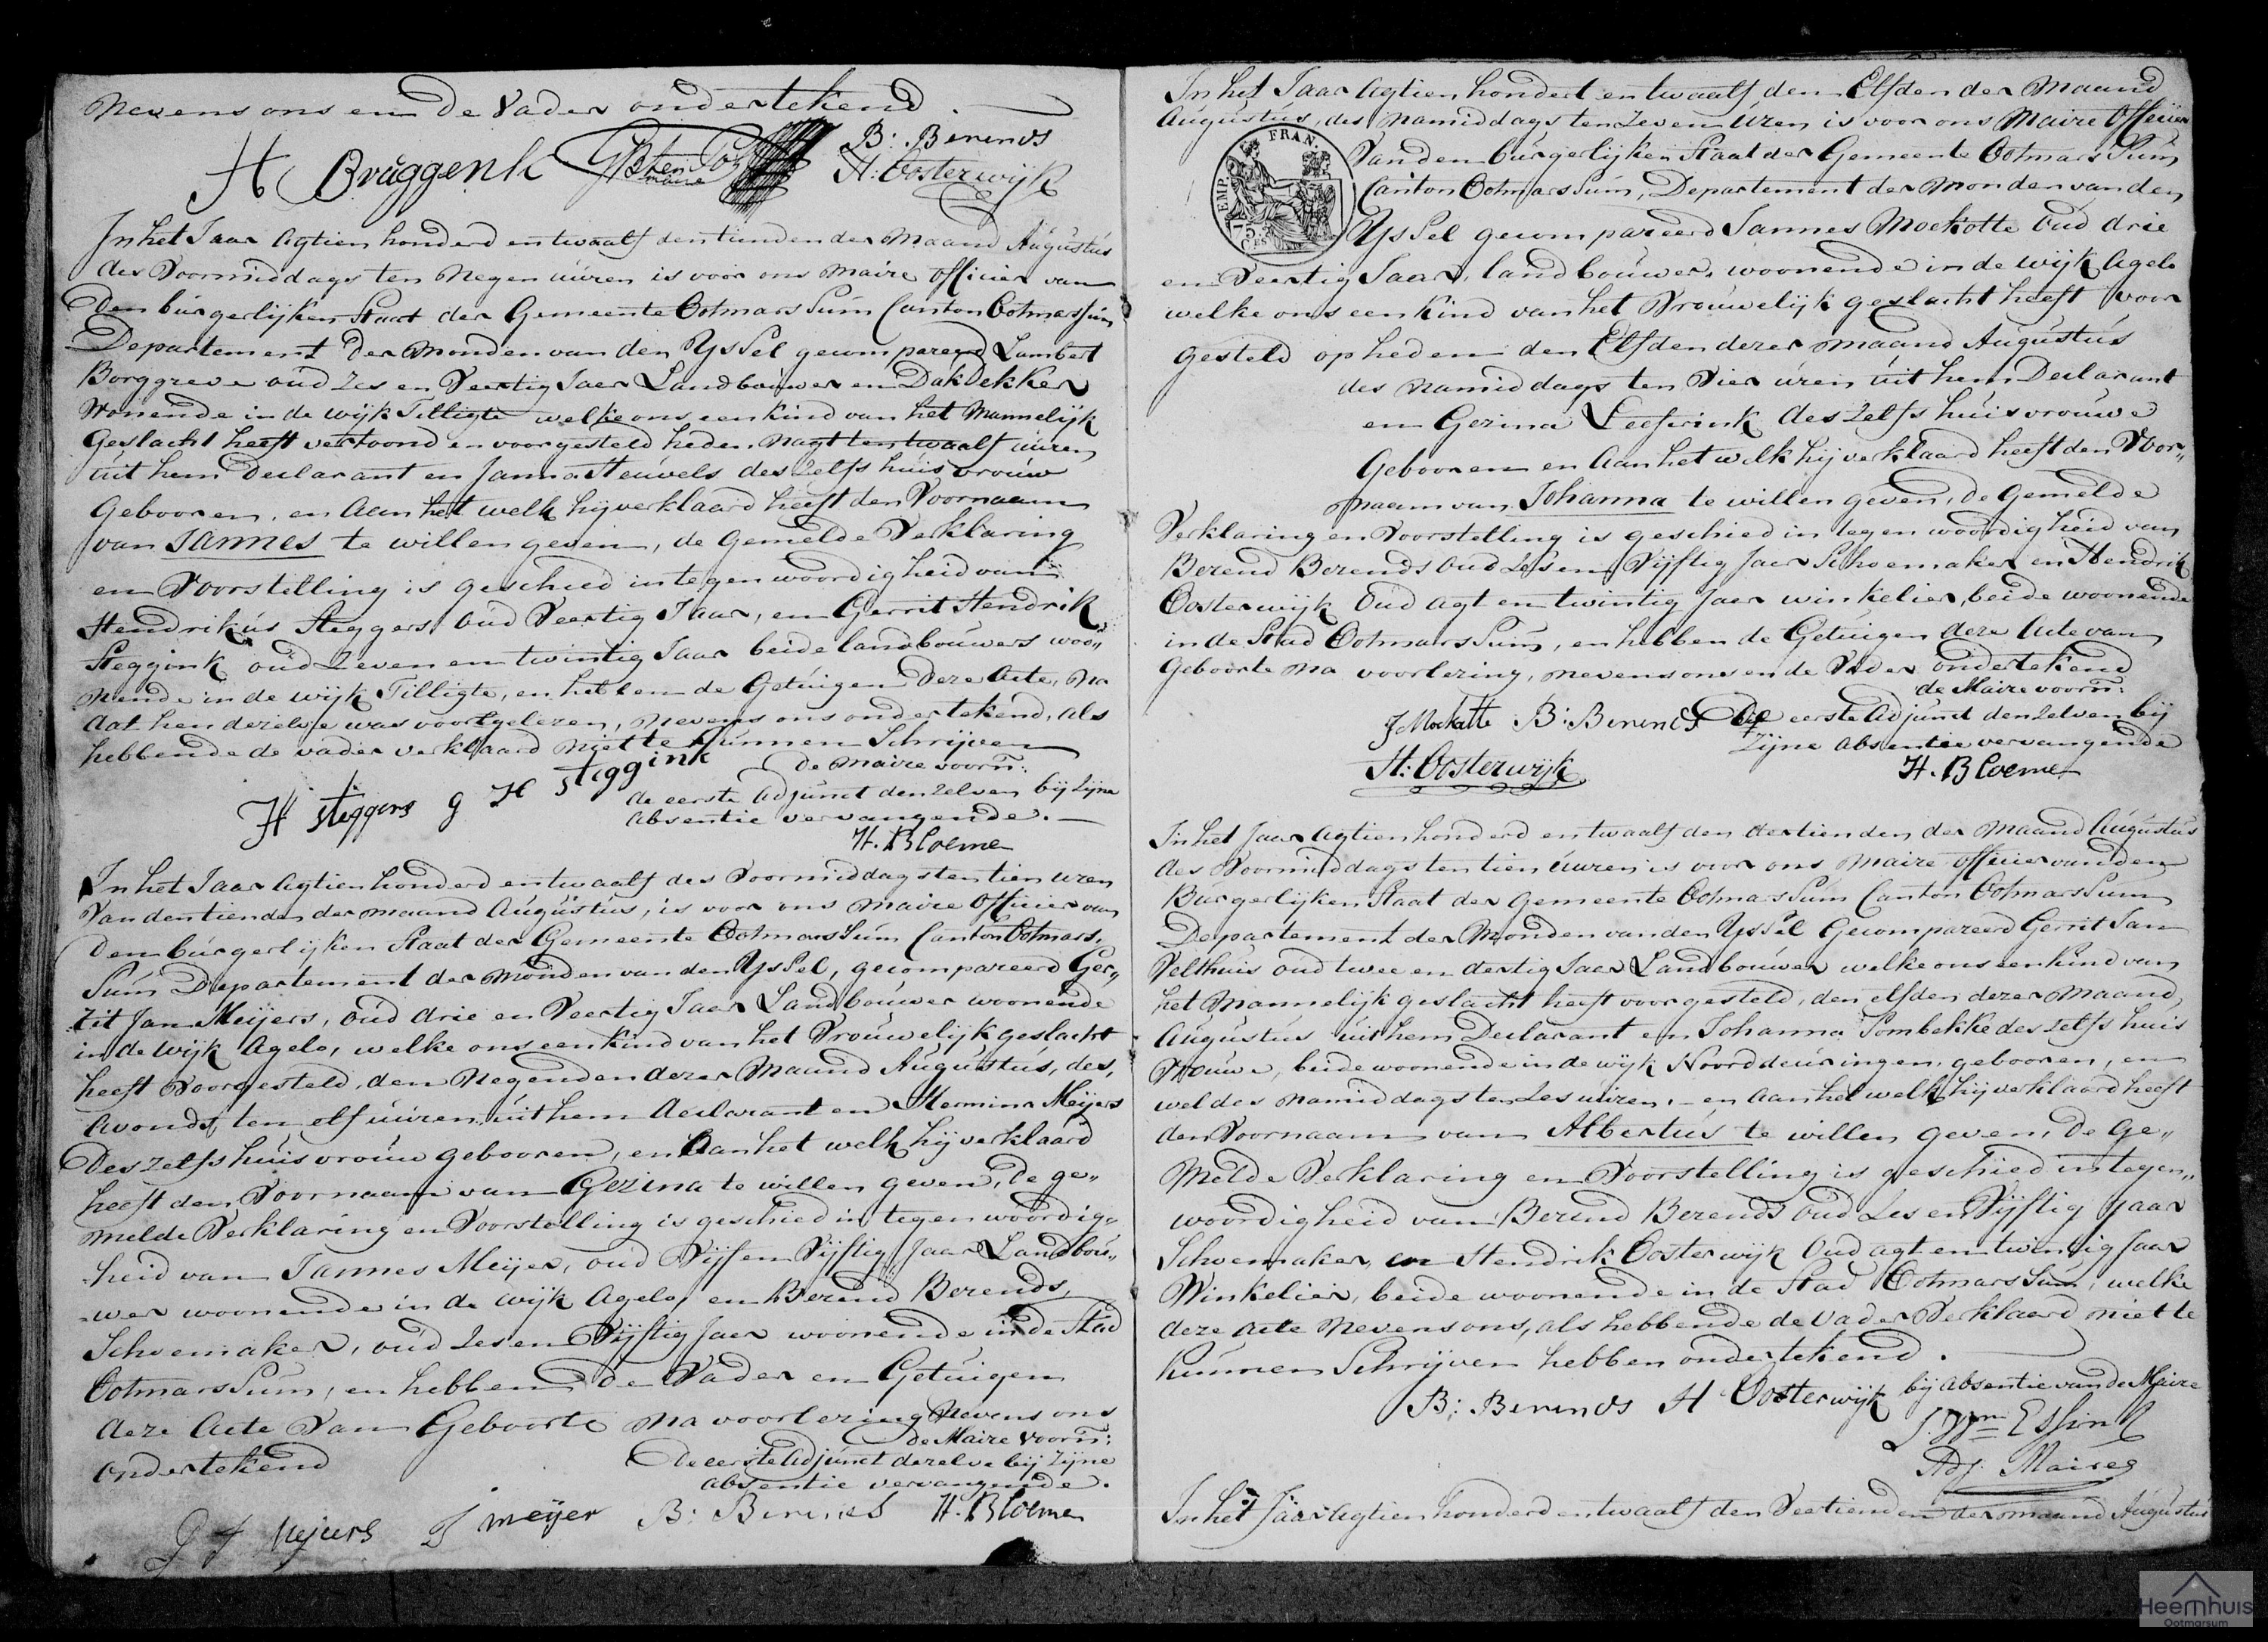 Nevens ons en De Vader ondertekend.
B: Berends
H Bruggenk
maire
H: Oosterwijk
In het Jaar Agtien honderd en twaalf den tienden der Maand Augustus
des Voormiddags ten Negen uúren is voor ons Maire officier van
Den burgerlijken Staat der Gemeente Ootmarssum Canton Ootmarssum
Departement Der Monden van den Yssel gecompareerd Lambert
Borggreve oud Zes en Veertig Jaer Landbouwer en DakDekker
Wonende in de wijk Tilligte welke ons een kind van het Mannelijk
Geslacht heeft vertoond en voorgesteld heden Nagt ten twaalf uúren
uit hem Declarant en Janna Steuvels deszelfs huisvrouw
Gebooren, en Aan het welk hij verklaard heeft den Voornaam
van JANNES te willen geven, de Gemelde Verklaring
en Voorstelling is geschied in tegenwoordigheid van
Hendrikus Steggers oud Veertig Jaar, en Gerrit Hendrik
Steggink oud Zeven en twintig Jaar beide landbouwers woo„
nende in de wijk Tilligte, en hebben de Getuigen Deze Acte, Na
dat hen dezelve was voorgelezen, Nevens ons ondertekend, als
hebbende de vader verklaard Niet te kunnen Schrijven
de Maire voorn:
H steggers g H steggink
de eerste Adjunct denzelven bij Zijne
Absentie vervangende.
H. Bloeme
In het Jaar Agtien honderd en twaalf des Voormiddags ten tien uren
Van den tienden der maand Augustus, is voor ons Maire Officier van
den burgerlijken Staat der Gemeente Ootmarssum Canton Ootmars„
Sum Departement der Monden van den Yssel, gecompareerd Ger„
rit Jan Meijers, oud drie en Veertig Jaer Landbouwer woonende
in de wijk Agelo, welke ons een kind van het Vrouwelijk geslacht
heeft Voorgesteld, den Negenden dezer Maand Augustus, des,
Avonds, ten elf uúren, uit hem declarant en Hermina Meijers
Deszelfs huisvrouw gebooren, en Aan het welk hij verklaard
heeft den Voornaam van Gezina te willen geven, de ge„
melde Verklaring en Voorstelling is geschied in tegenwoordig„
heid van Jannes Meijer, oud Vijf en Vijftig Jaar Landbou„
wer woonende in de wijk Agelo, en Berend Berends,
Schoemaker, oud Zes en Vijftig Jaer woonende in de Stad
Ootmarssum, en hebben de Vader en Getuigen
deze Acte Van Geboorte Na voorlezing Nevens ons
ondertekend
de Maire Voorn:
De eerste Adjunct dezelve bij Zijne
absentie vervangende.
meijer B: Berends H. Bloeme
In het Jaar Agtien hondert en twaalf den Elfden der Maand
Augustus, des Namiddags ten Zeven Uren, is voor ons Maire Officier
Van den burgerlijken Staat der Gemeente Ootmarssum
Canton Ootmarssum, Departement der Monden van den
Yssel gecompareerd Jannes Mockotte Oud drie
en Veertig Jaar, landbouwer, woonende in de wijk Agelo
welke ons een kind van het Vrouwelijk geslacht heeft voor
gesteld op heden den Elfden dezer maand Augustus
des Namiddags ten Vier uren uit hem Declarant
en Gezina Leeferink deszelfs huisvrouwe
Gebooren en Aan het welk hij verklaard heeft den Voor„
naam van Johanna te willen geven, de Gemelde
Verklaring en Voorstelling is geschied in tegenwoordigheid van
Berend Berends Oud Zes en Vijftig Jaer Schoemaker en Hendrik
Oosterwijk Oud Agt en twintig Jaer winkelier, beide woonende
in de Stad Ootmarssum, en hebben de Getuigen deze Acte van
Geboorte Na voorlezing, nevens ons en de Vader ondertekend
de Maire voorn:
J Mockotte B: Berends De eerste Adjunct denzelven bij
Zijne Absentie vervangende
H: Oosterwijk
H. Bloemen
EMP. FRAN.
75
CES
In het Jaar Agtien honderd en twaalf den dertienden der Maand Augustus
des Voormiddags ten tien uúren is voor ons Maire officier van den
Burgerlijken Staat der Gemeente Ootmarssum Canton Ootmarssum
Departement der Monden van den Yssel Gecompareerd Gerrit Jan
Velthuis oud twee en dertig Jaer Landbouwer welke ons een kind van
het Mannelijk geslacht heeft voorgesteld, den elfden dezer Maand,
Augustus uit hem Declarant en Johanna Pombekke deszelfs huis
Vrouwe, beide woonende in de wijk Noorddeuringen, gebooren, en
wel des Namiddags ten Zes uúren, – en Aan het welk hij verklaard heeft
den Voornaam van Albertus te willen geven, De Ge„
Melde Verklaring en Voorstelling is geschied in tegen„
woordigheid van Berend Berends Oud Zes en Vijftig Jaar
Schoemaker, en Hendrik Oosterwijk Oud agt en twintig Jaar
Winkelier, beide woonende in de Stad Ootmarssum, welke
deze Acte Nevens ons, als hebbende de Vader Verklaard niet te
kunnen Schrijven hebben ondertekend.
B: Berends H Oosterwijk bij Absentie van de Maire
Essink
Adj. Maire
In het Jaar Agtien honderd en twaalf den Veertienden der maand Augustus
Heemhuis
Ootmarsum